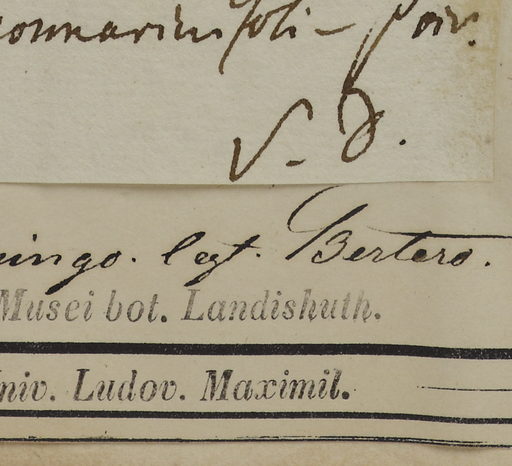 connarifolia Poir.
S. D.
mingo. legt. Bertero.
Musei bot. Landishuth.
niv. Ludov. Maximil.